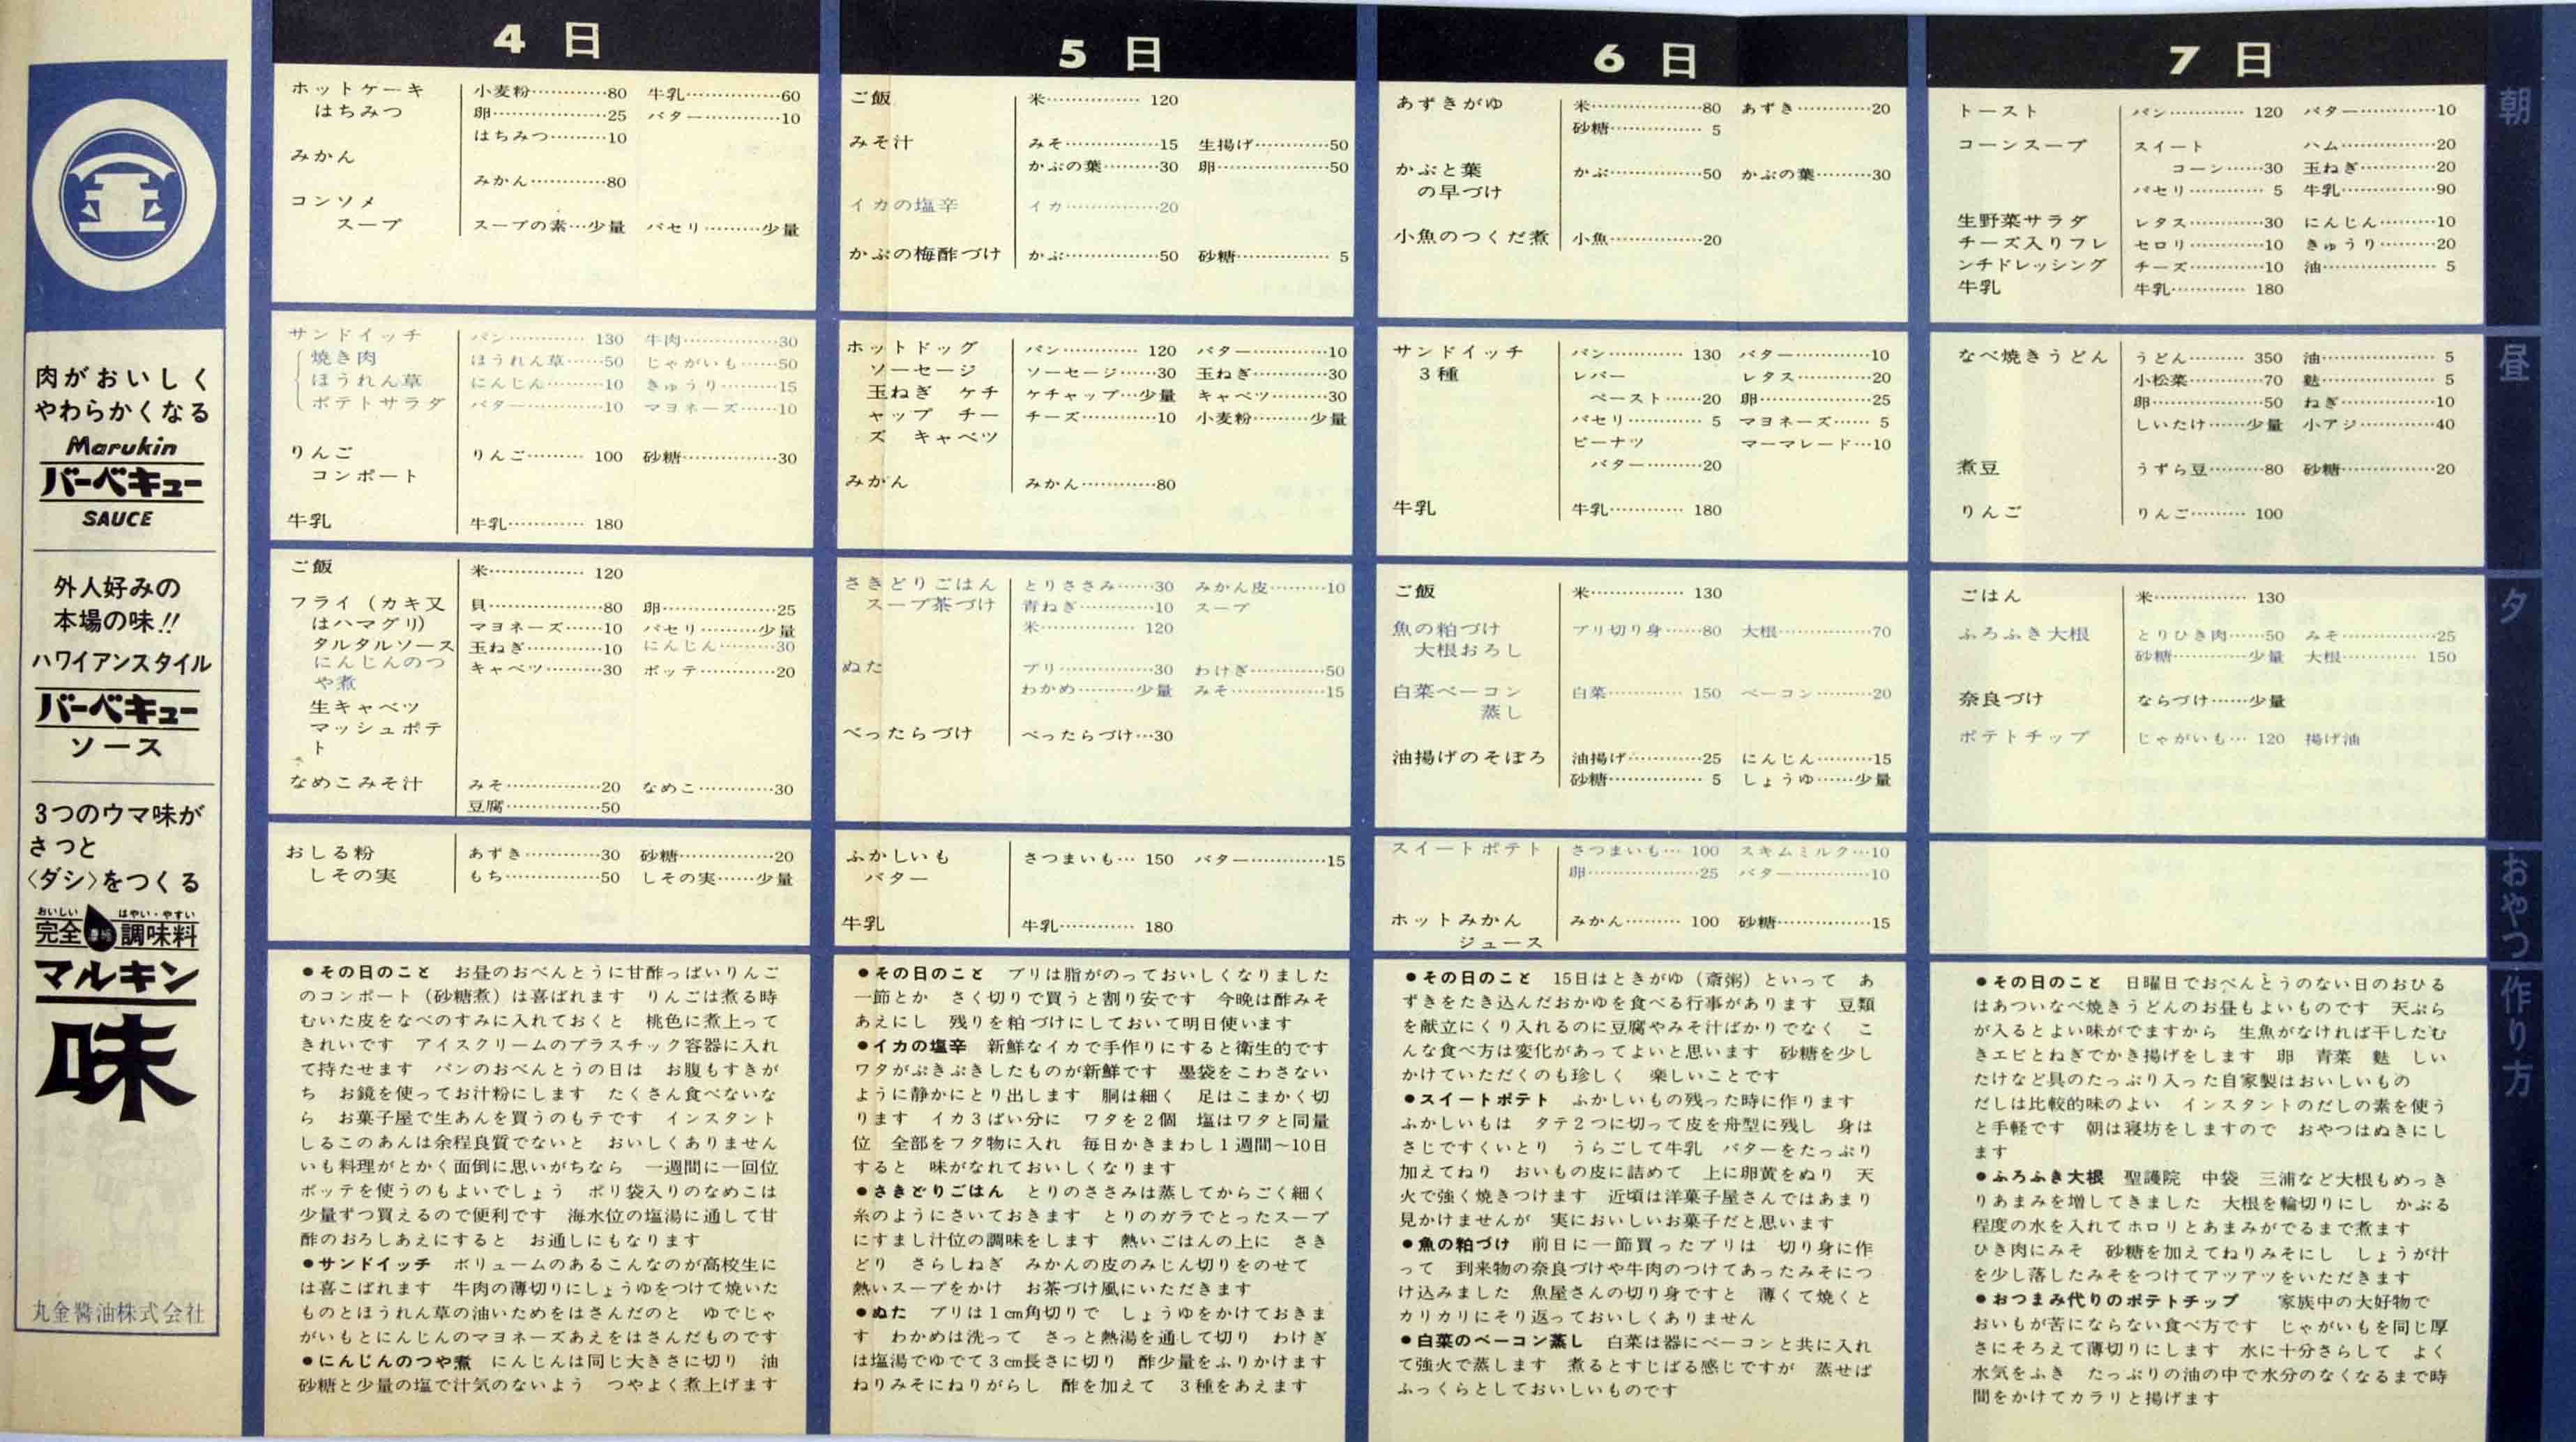 肉がおいしく
やわらかくなる
Marukin
バーベキュー
SAUCE
外人好みの
本場の味!!
ハワイアンスタイル
バーベキュー
ソース
3つのウマ味が
さっと
〈ダシ〉をつくる
おいしい はやい・やすい
完全 調味料
マルキン
味
丸金醬油株式会社
4日
ホットケーキ 小麦粉…………80 牛乳……………60
はちみつ 卵………………25 バター…………10
はちみつ………10
みかん
みかん…………80
コンソメ
スープ スープの素…少量 パセリ………少量
サンドイッチ パン………… 130 牛肉……………30
焼き肉 ほうれん草……50 じゃがいも……50
ほうれん草 にんじん………10 きゅうり………15
ポテトサラダ バター…………10 マヨネーズ……10
りんご りんご……… 100 砂糖……………30
コンポート
牛乳 牛乳………… 180
ご飯 米…………… 120
フライ(カキ又 貝………………80 卵………………25
はハマグリ) マヨネーズ……10 パセリ………少量
タルタルソース 玉ねぎ…………10 にんじん………30
にんじんのつ キャベツ………30 ポッテ…………20
や煮
生キャベツ
マッシュポテ
ト
なめこみそ汁 みそ……………20 なめこ…………30
豆腐……………50
おしる粉 あずき…………30 砂糖……………20
しその実 もち……………50 しその実……少量
●その日のこと お昼のおべんとうに甘酢っぱいりんご
のコンポート(砂糖煮)は喜ばれます りんごは煮る時
むいた皮をなべのすみに入れておくと 桃色に煮上って
きれいです アイスクリームのプラスチック容器に入れ
て持たせます パンのおべんとうの日は お腹もすきが
ち お鏡を使ってお汁粉にします たくさん食べないな
ら お菓子屋で生あんを買うのもテです インスタント
しるこのあんは余程良質でないと おいしくありません
いも料理がとかく面倒に思いがちなら 一週間に一回位
ポッテを使うのもよいでしょう ポリ袋入りのなめこは
少量ずつ買えるので便利です 海水位の塩湯に通して甘
酢のおろしあえにすると お通しにもなります
●サンドイッチ ボリュームのあるこんなのが高校生に
は喜こばれます 牛肉の薄切りにしょうゆをつけて焼いた
ものとほうれん草の油いためをはさんだのと ゆでじゃ
がいもとにんじんのマヨネーズあえをはさんだものです
●にんじんのつや煮 にんじんは同じ大きさに切り 油
砂糖と少量の塩で汁気のないよう つやよく煮上げます
5日
ご飯 米…………… 120
みそ汁 みそ……………15 生揚げ…………50
かぶの葉………30 卵………………50
イカの塩辛 イカ……………20
かぶの梅酢づけ かぶ……………50 砂糖…………… 5
ホットドッグ パン………… 120 バター…………10
ソーセージ ソーセージ……30 玉ねぎ…………30
玉ねぎ ケチ ケチャップ…少量 キャベツ………30
ャップ チー チーズ…………10 小麦粉………少量
ズ キャベツ
みかん みかん…………80
さきどりごはん とりささみ……30 みかん皮………10
スープ茶づけ 青ねぎ…………10 スープ
米…………… 120
ぬた ブリ……………30 わけぎ…………50
わかめ………少量 みそ……………15
べったらづけ べったらづけ…30
ふかしいも さつまいも… 150 バター…………15
バター
牛乳 牛乳………… 180
●その日のこと ブリは脂がのっておいしくなりました
一節とか さく切りで買うと割り安です 今晩は酢みそ
あえにし 残りを粕づけにしておいて明日使います
●イカの塩辛 新鮮なイカで手作りにすると衛生的です
ワタがぷきぷきしたものが新鮮です 墨袋をこわさない
ように静かにとり出します 胴は細く 足はこまかく切
ります イカ3ばい分に ワタを2個 塩はワタと同量
位 全部をフタ物に入れ 毎日かきまわし1週間〜10日
すると 味がなれておいしくなります
●さきどりごはん とりのささみは蒸してからごく細く
糸のようにさいておきます とりのガラでとったスープ
にすまし汁位の調味をします 熱いごはんの上に さき
どり さらしねぎ みかんの皮のみじん切りをのせて
熱いスープをかけ お茶づけ風にいただきます
●ぬた ブリは1cm角切りで しょうゆをかけておきま
す わかめは洗って さっと熱湯を通して切り わけぎ
は塩湯でゆでて3cm長さに切り 酢少量をふりかけます
ねりみそにねりがらし 酢を加えて 3種をあえます
6日
あずきがゆ 米………………80 あずき…………20
砂糖…………… 5
かぶと葉 かぶ……………50 かぶの葉………30
の早づけ
小魚のつくだ煮 小魚……………20
サンドイッチ パン………… 130 バター…………10
3種 レバー レタス…………20
ペースト……20 卵………………25
パセリ………… 5 マヨネーズ…… 5
ピーナツ マーマレード…10
バター………20
牛乳 牛乳………… 180
ご飯 米…………… 130
魚の粕づけ ブリ切り身……80 大根……………70
大根おろし
白菜ベーコン 白菜………… 150 ベーコン………20
蒸し
油揚げのそぼろ 油揚げ…………25 にんじん………15
砂糖…………… 5 しょうゆ……少量
スイートポテト さつまいも… 100 スキムミルク…10
卵………………25 バター…………10
ホットみかん みかん……… 100 砂糖……………15
ジュース
●その日のこと 15日はときがゆ(斎粥)といって あ
ずきをたき込んだおかゆを食べる行事があります 豆類
を献立にくり入れるのに豆腐やみそ汁ばかりでなく こ
んな食べ方は変化があってよいと思います 砂糖を少し
かけていただくのも珍しく 楽しいことです
●スイートポテト ふかしいもの残った時に作ります
ふかしいもは タテ2つに切って皮を舟型に残し 身は
さじですくいとり うらごして牛乳 バターをたっぷり
加えてねり おいもの皮に詰めて 上に卵黄をぬり 天
火で強く焼きつけます 近頃は洋菓子屋さんではあまり
見かけませんが 実においしいお菓子だと思います
●魚の粕づけ 前日に一節買ったブリは 切り身に作
って 到来物の奈良づけや牛肉のつけてあったみそにつ
け込みました 魚屋さんの切り身ですと 薄くて焼くと
カリカリにそり返っておいしくありません
●白菜のベーコン蒸し 白菜は器にベーコンと共に入れ
て強火で蒸します 煮るとすじばる感じですが 蒸せば
ふっくらとしておいしいものです
7日
トースト パン………… 120 バター…………10
コーンスープ スイート ハム……………20
コーン……30 玉ねぎ…………20
パセリ………… 5 牛乳……………90
生野菜サラダ レタス…………30 にんじん………10
チーズ入りフレ セロリ…………10 きゅうり………20
ンチドレッシング チーズ…………10 油……………… 5
牛乳 牛乳………… 180
なべ焼きうどん うどん……… 350 油……………… 5
小松菜…………70 麩……………… 5
卵………………50 ねぎ……………10
しいたけ……少量 小アジ…………40
煮豆 うずら豆………80 砂糖……………20
りんご りんご……… 100
ごはん 米…………… 130
ふろふき大根 とりひき肉……50 みそ……………25
砂糖…………少量 大根………… 150
奈良づけ ならづけ……少量
ポテトチップ じゃがいも… 120 揚げ油
●その日のこと 日曜日でおべんとうのない日のおひる
はあついなべ焼きうどんのお昼もよいものです 天ぷら
が入るとよい味がでますから 生魚がなければ干したむ
きエビとねぎでかき揚げをします 卵 青菜 麩 しい
たけなど具のたっぷり入った自家製はおいしいもの
だしは比較的味のよい インスタントのだしの素を使う
と手軽です 朝は寝坊をしますので おやつはぬきにし
ます
●ふろふき大根 聖護院 中袋 三浦など大根もめっき
りあまみを増してきました 大根を輪切りにし かぶる
程度の水を入れてホロリとあまみがでるまで煮ます
ひき肉にみそ 砂糖を加えてねりみそにし しょうが汁
を少し落したみそをつけてアツアツをいただきます
●おつまみ代りのポテトチップ 家族中の大好物で
おいもが苦にならない食べ方です じゃがいもを同じ厚
さにそろえて薄切りにします 水に十分さらして よく
水気をふき たっぷりの油の中で水分のなくなるまで時
間をかけてカラリと揚げます
朝
昼
夕
おやつ
作り方